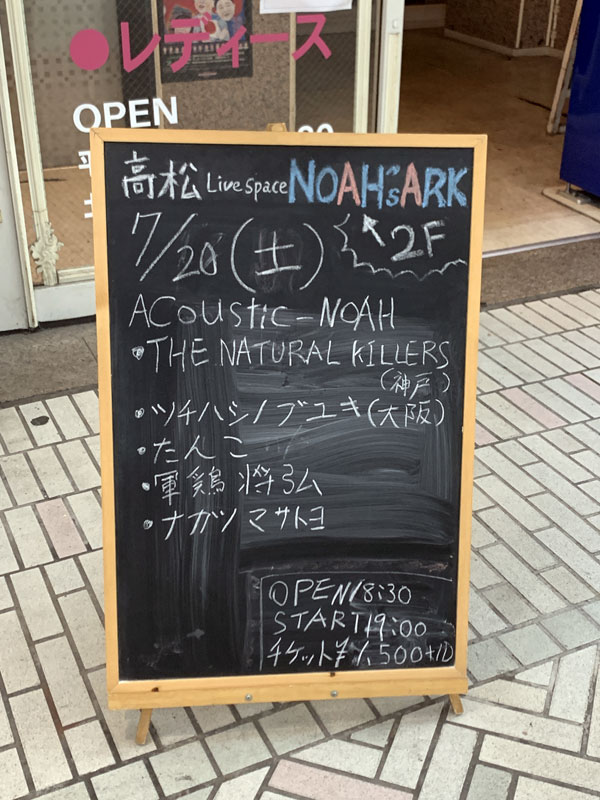 ●レディース
OPEN
高松 Live Space NOAH'sARK
7/20(土) 2F
ACoustic-NOAH
・THE NATURAL KILLERS
(神戸)
・ツチハシノブユキ(大阪)
・たんこ
・軍鶏 将ラム
・ナガツマサトヨ
OPEN18:30
START19:00
チケット¥1,500+1D